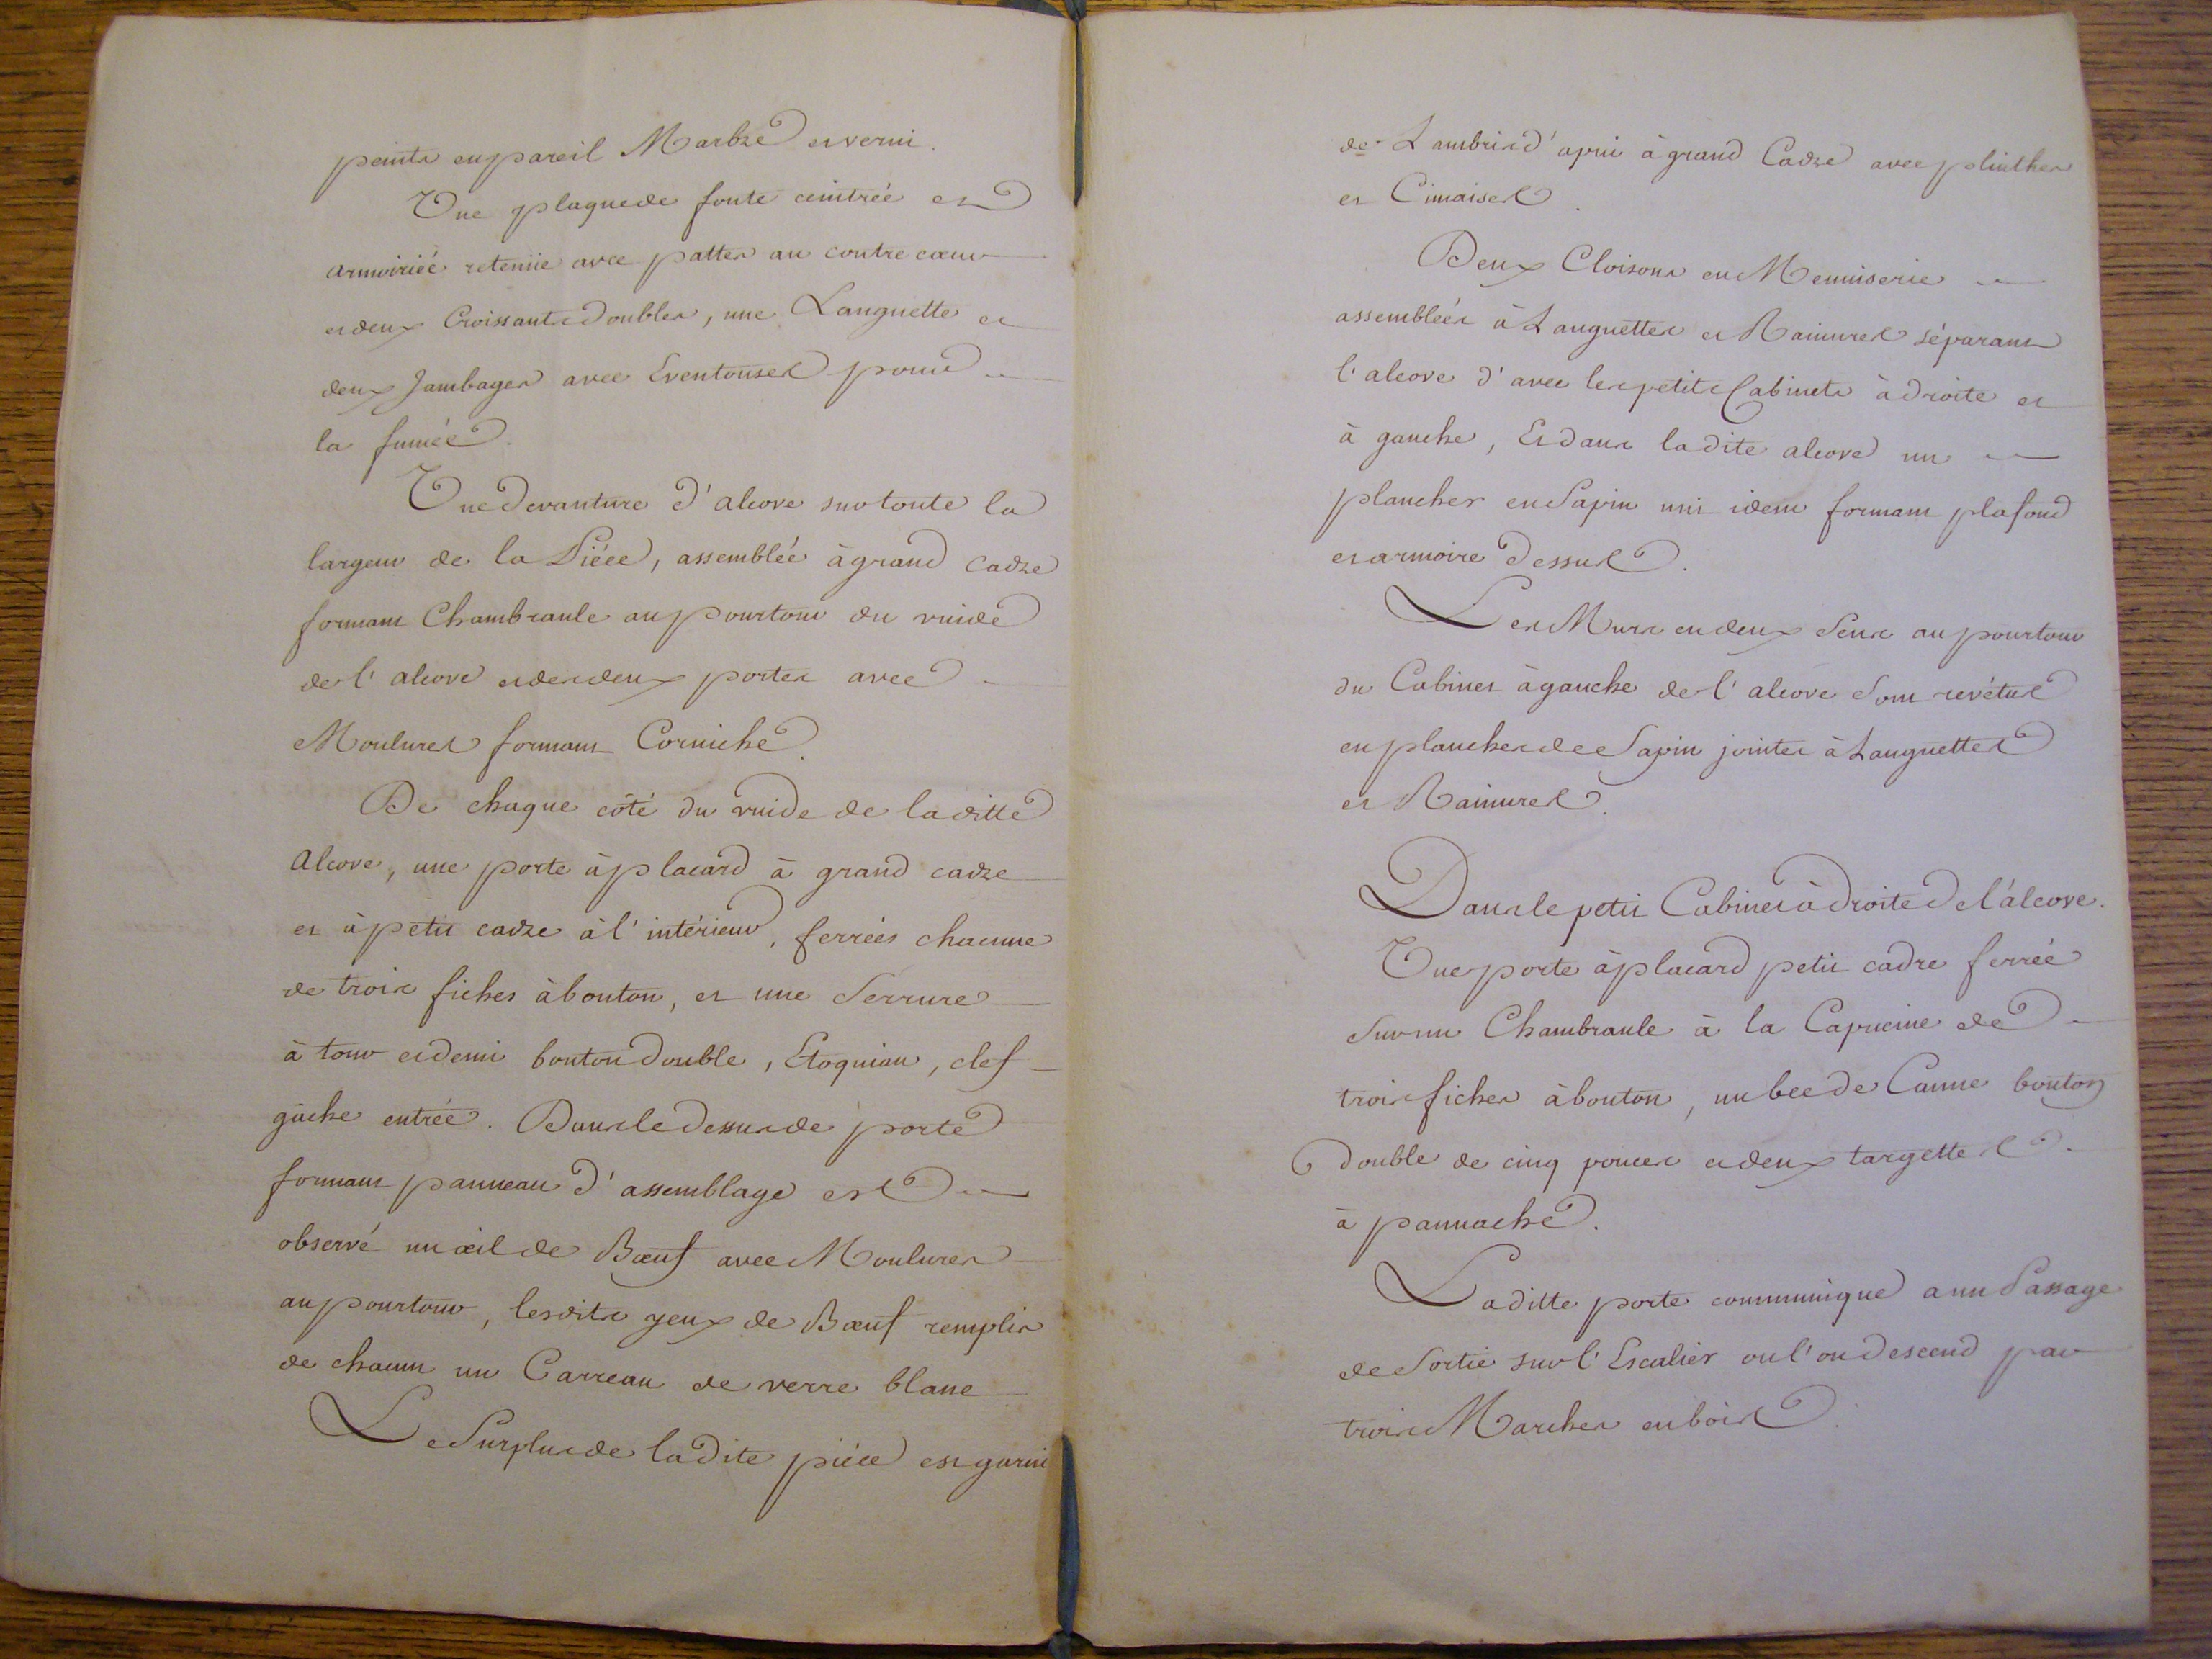 peints en pareil Marbre et verni.
Une plaque de fonte ceintrée et
armoiriée retenüe avec pattes au contre cœur
et deux Croissants doubles, une Languette et
deux Jambages avec Eventouses pour
la fumée.
Une devanture d'alcove sur toute la
largeur de la Piéce, assemblée à grand cadre
formant Chambranle au pourtour du vuide
de l'alcove et des deux portes avec
Moulures formant Corniche.
De chaque côté du vuide de la ditte
Alcove, une porte à placard à grand cadre
et à petit cadre à l'intérieur, ferrées chacune
de trois fiches à bouton, et une Serrure
à tour et demi bouton double, Etoquiau, clef
gâche entrée. Dans le dessus de porte
formant panneau d'assemblage est
observé un œil de Bœuf avec Moulures
au pourtour, lesdits yeux de Bœuf remplis
de chacun un Carreau de verre blanc
Le Surplus de la dite piéce est garni
de Lambris d'apui à grand Cadre avec plinthes
et Cimaises.
Deux Cloisons en Menuiserie
assemblées à Languettes et Rainures séparant
l'alcove d'avec les petits Cabinets à droite et
à gauche, Et dans la dite alcove un
plancher en Sapin uni idem formant plafond
et armoire dessus.
Les Murs en deux Sens au pourtour
du Cabinet à gauche de l'alcove Sont revétus
en planches de Sapin jointes à Languettes
et Rainures.
Dans le petit Cabinet à droite de l'alcove.
Une porte à placard petit cadre ferrée
Sur un Chambranle à la Capucine de
trois fiches à bouton, un bec de Canne bouton
double de cinq pouces et deux targettes
à pannache.
La ditte porte communique a un Passage
de Sortie sur l'Escalier ou l'on descend par
trois Marches en bois.